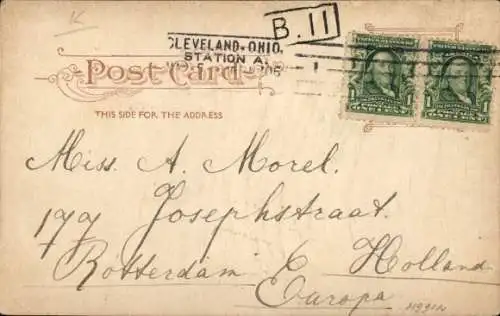 K
B.11
CLEVELAND, OHIO,
STATION A.
POST CARD
THIS SIDE FOR THE ADDRESS
1 1
1 1
Miss. A. Morel.
177 Josephstraat.
Rotterdam Holland
Europa